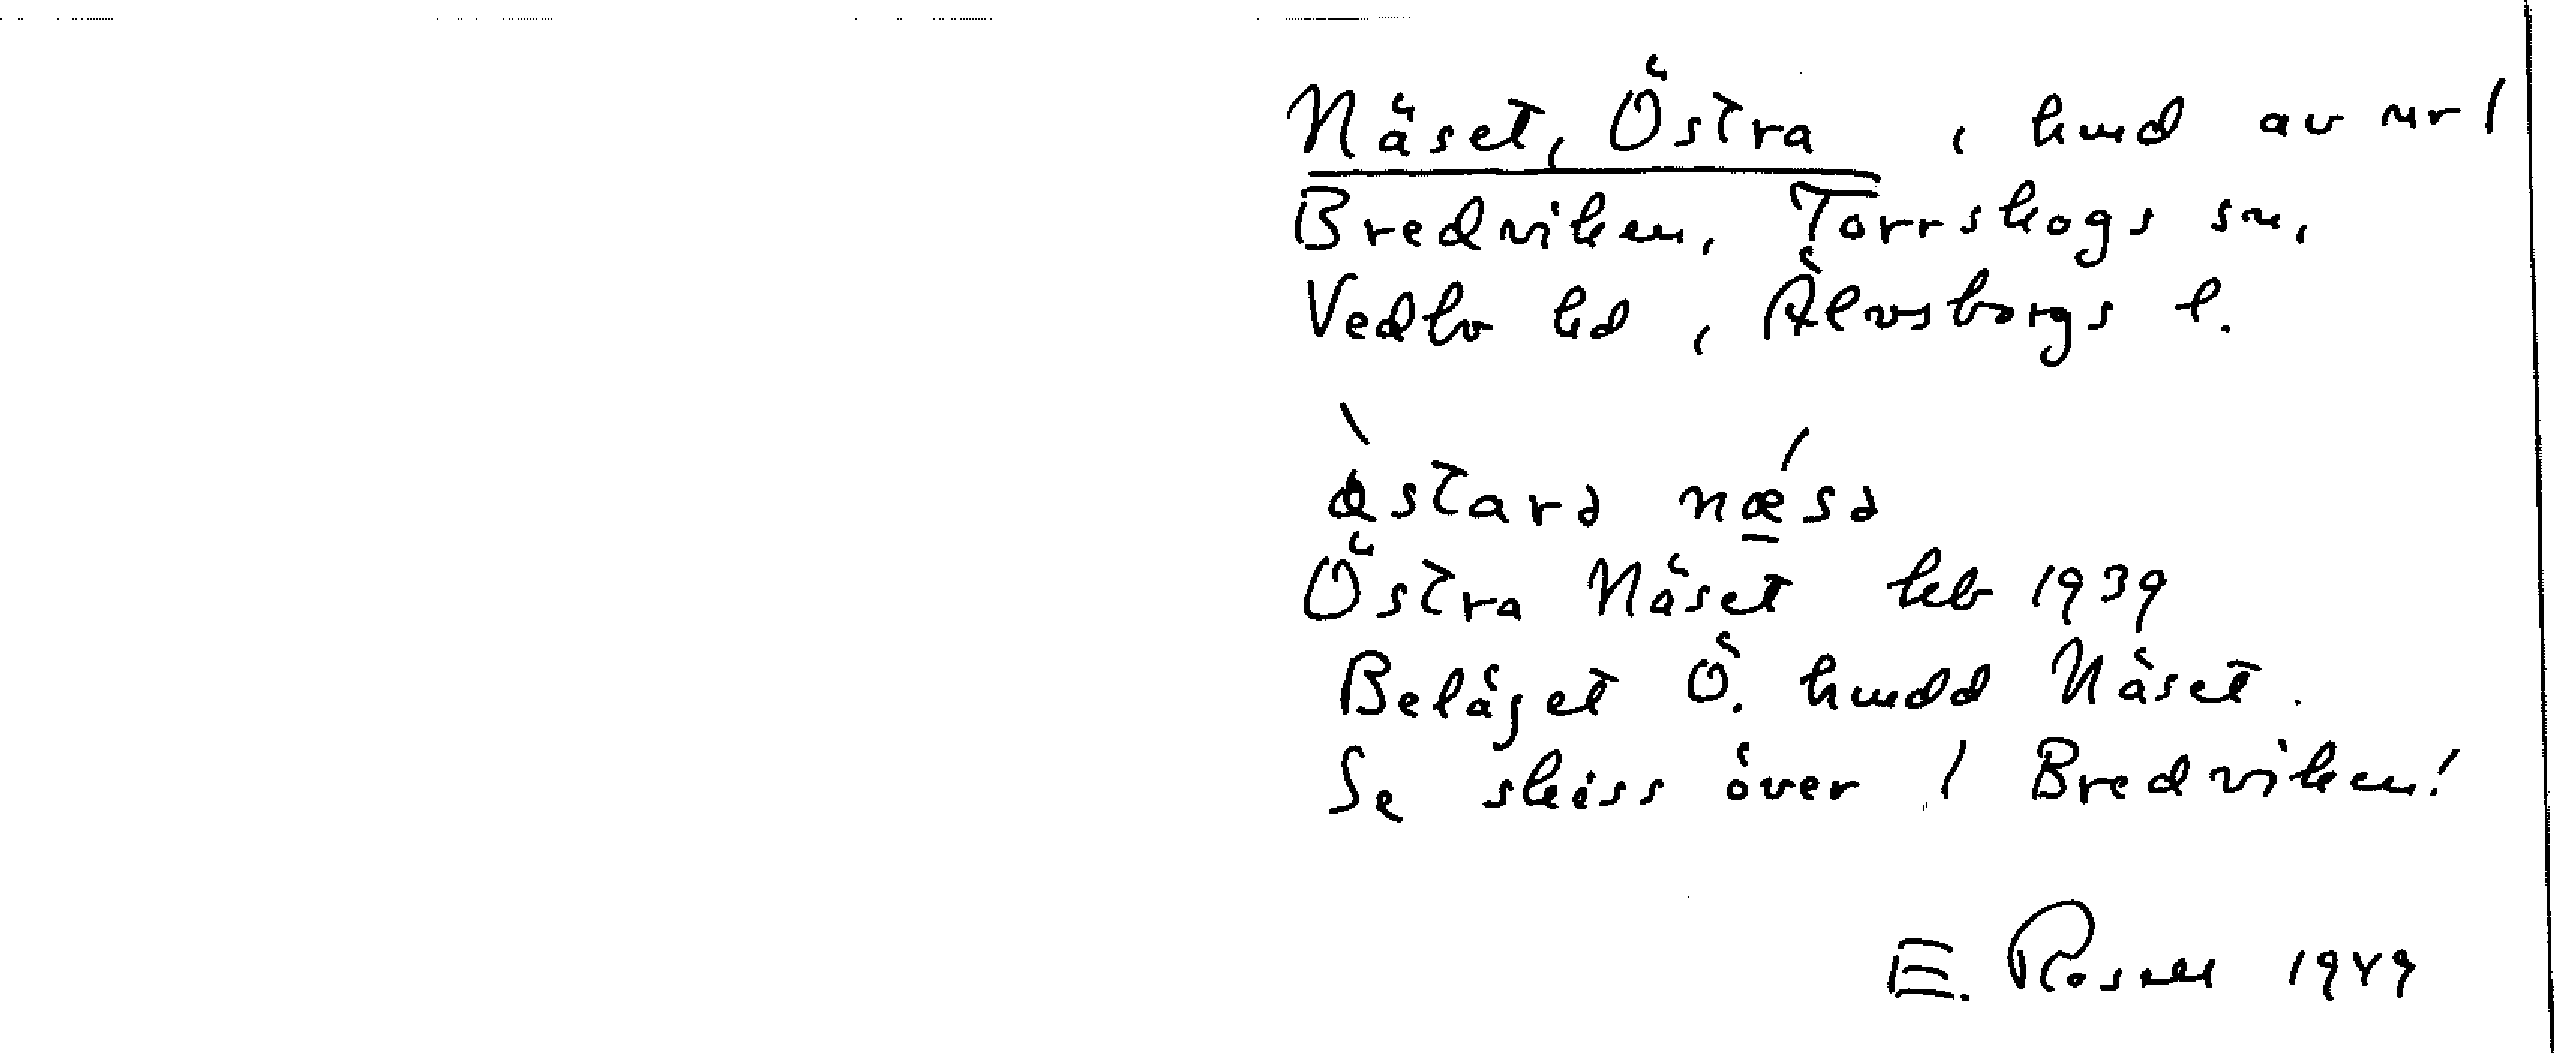 Näset, Östra, hmd av nr 1
Bredviken, Torrskogs sn,
Vedbo hd, Älvsborgs l.
næsə
Östra Näset kb 1939
Beläget Ö. hmdd Näset.
Se skiss över 1 Bredviken!
E. Rosell 1949